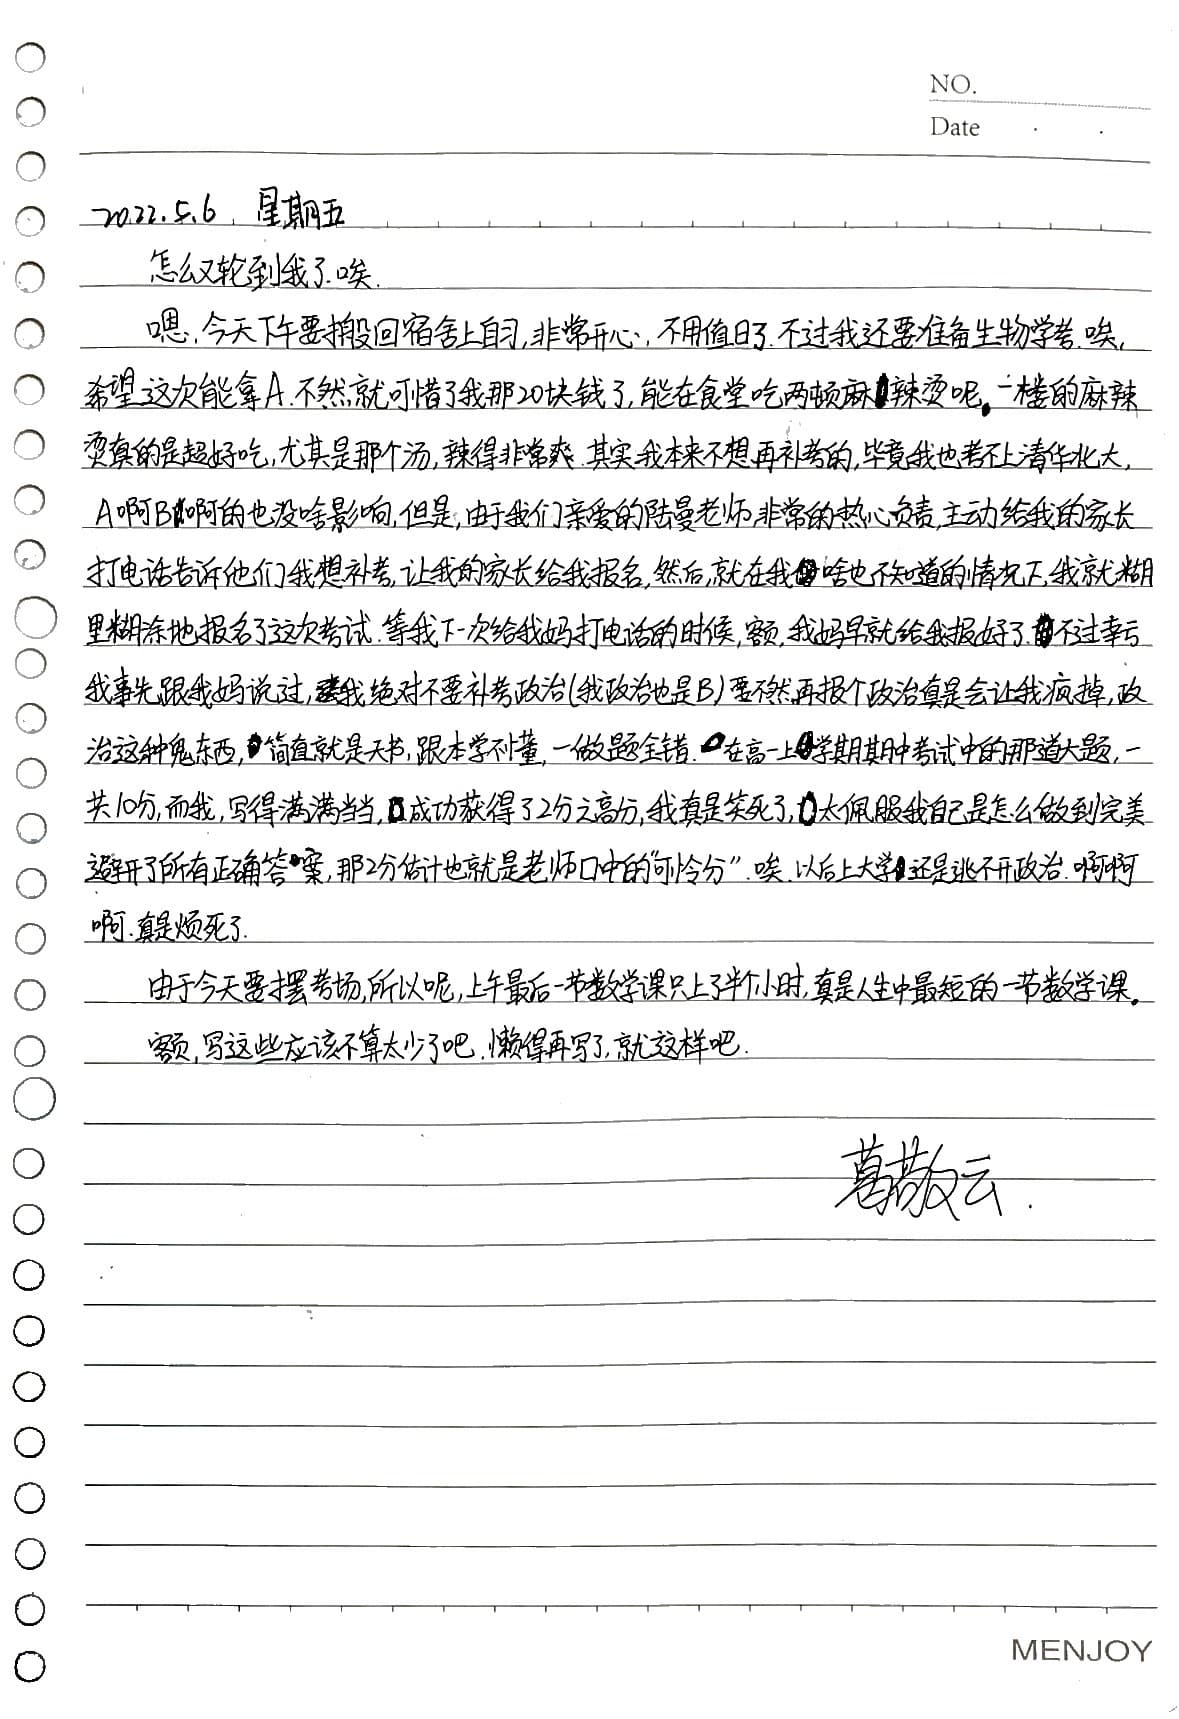 NO.
Date
2022.5.6 星期五
怎么又轮到我了.唉.
嗯,今天下午要搬回宿舍上自习,非常开心,不用值日了.不过我还要准备生物学考.唉,
希望这次能拿A.不然就可惜了我那20块钱了,能在食堂吃两顿麻辣烫呢。一楼的麻辣
烫真的是超好吃,尤其是那个汤,辣得非常爽.其实我本来不想再补考的,毕竟我也考不上清华北大,
A啊B啊的也没啥影响,但是,由于我们亲爱的陆曼老师,非常的热心负责,主动给我的家长
打电话告诉他们我想补考,让我的家长给我报名,然后,就在我啥也不知道的情况下,我就糊
里糊涂地报名了这次考试.等我下一次给我妈打电话的时候,额,我妈早就给我报好了.不过幸亏
我事先跟我妈说过,我绝对不要补考政治(我政治也是B)要不然再报个政治真是会让我疯掉,政
治这种鬼东西,简直就是天书,跟本学不懂,一做题全错.在高一上学期期中考试中的那道大题,一
共10分,而我,写得满满当当,成功获得了2分之高分,我真是笑死了,太佩服我自己是怎么做到完美
避开了所有正确答案,那2分估计也就是老师口中的"可怜分".唉.以后上大学还是逃不开政治.啊啊
啊.真是烦死了.
由于今天要摆考场,所以呢,上午最后一节数学课只上了半个小时,真是人生中最短的一节数学课。
额,写这些应该不算太少了吧.懒得再写了,就这样吧.
葛敬云.
MENJOY